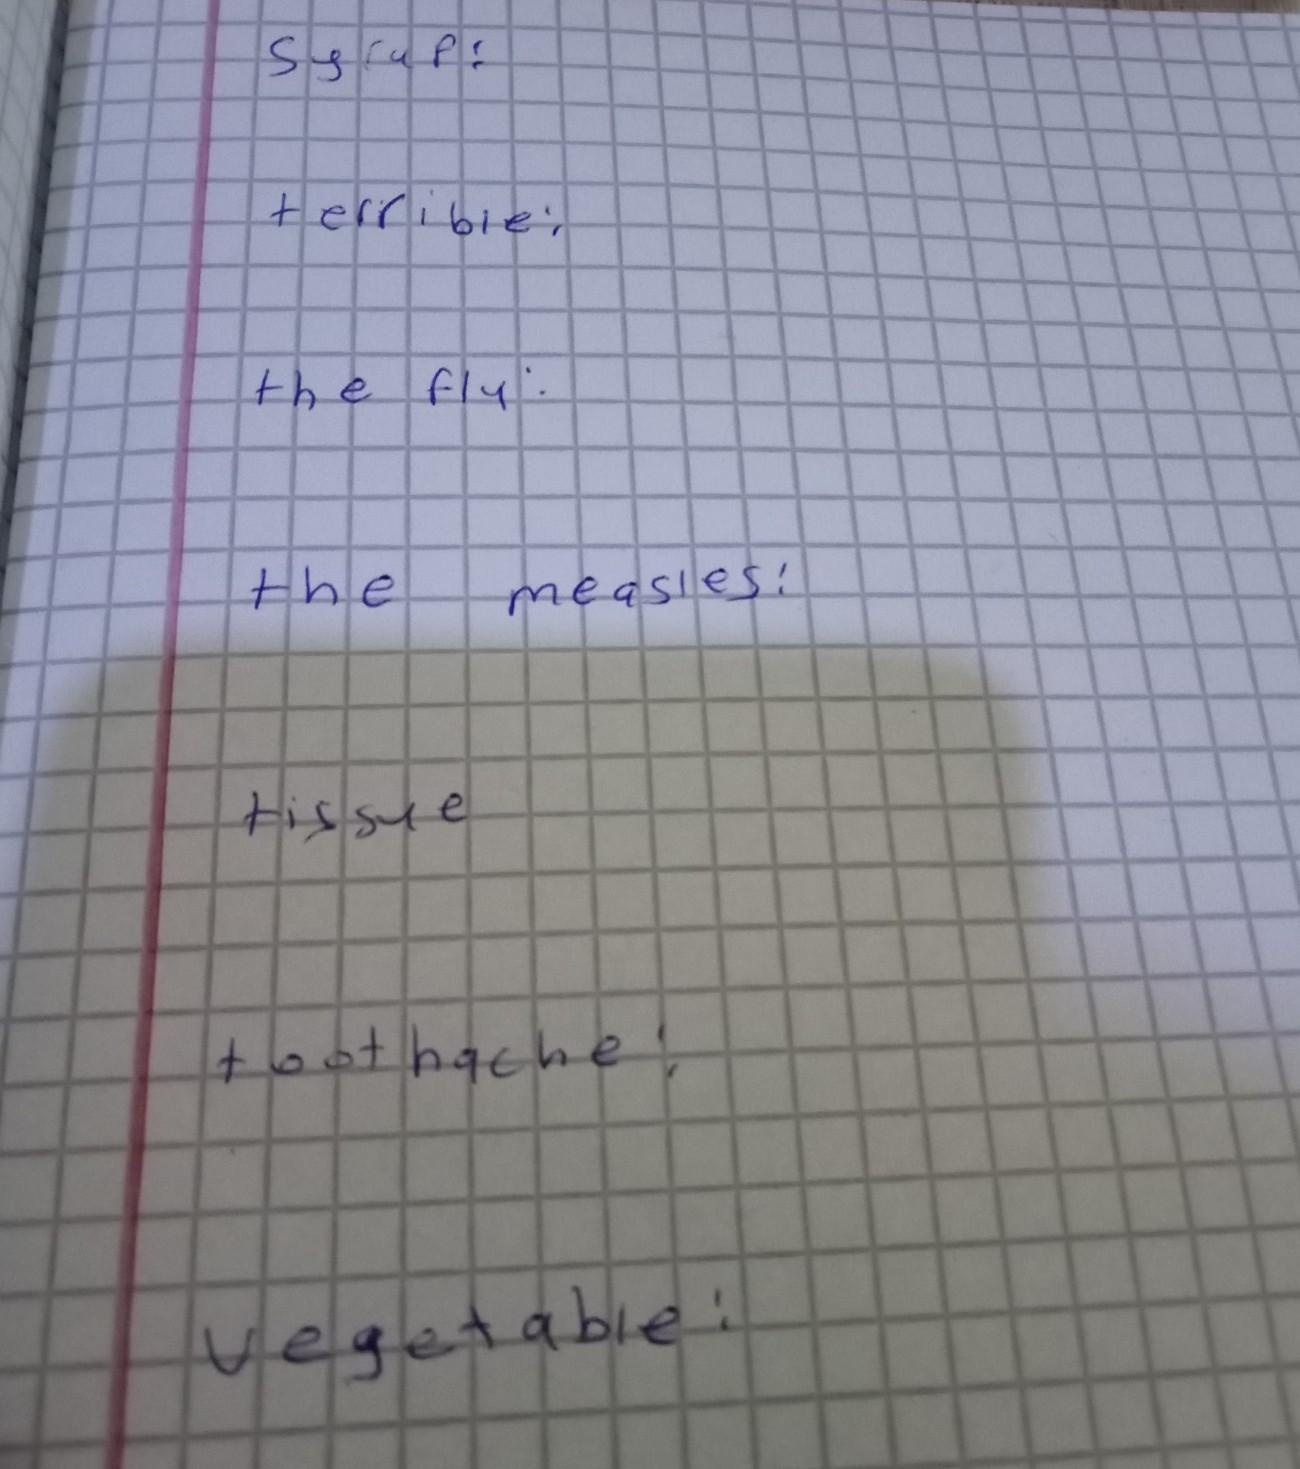 Syrup:
terrible:
the fly:
the measles:
tissue
toothache:
vegetable: